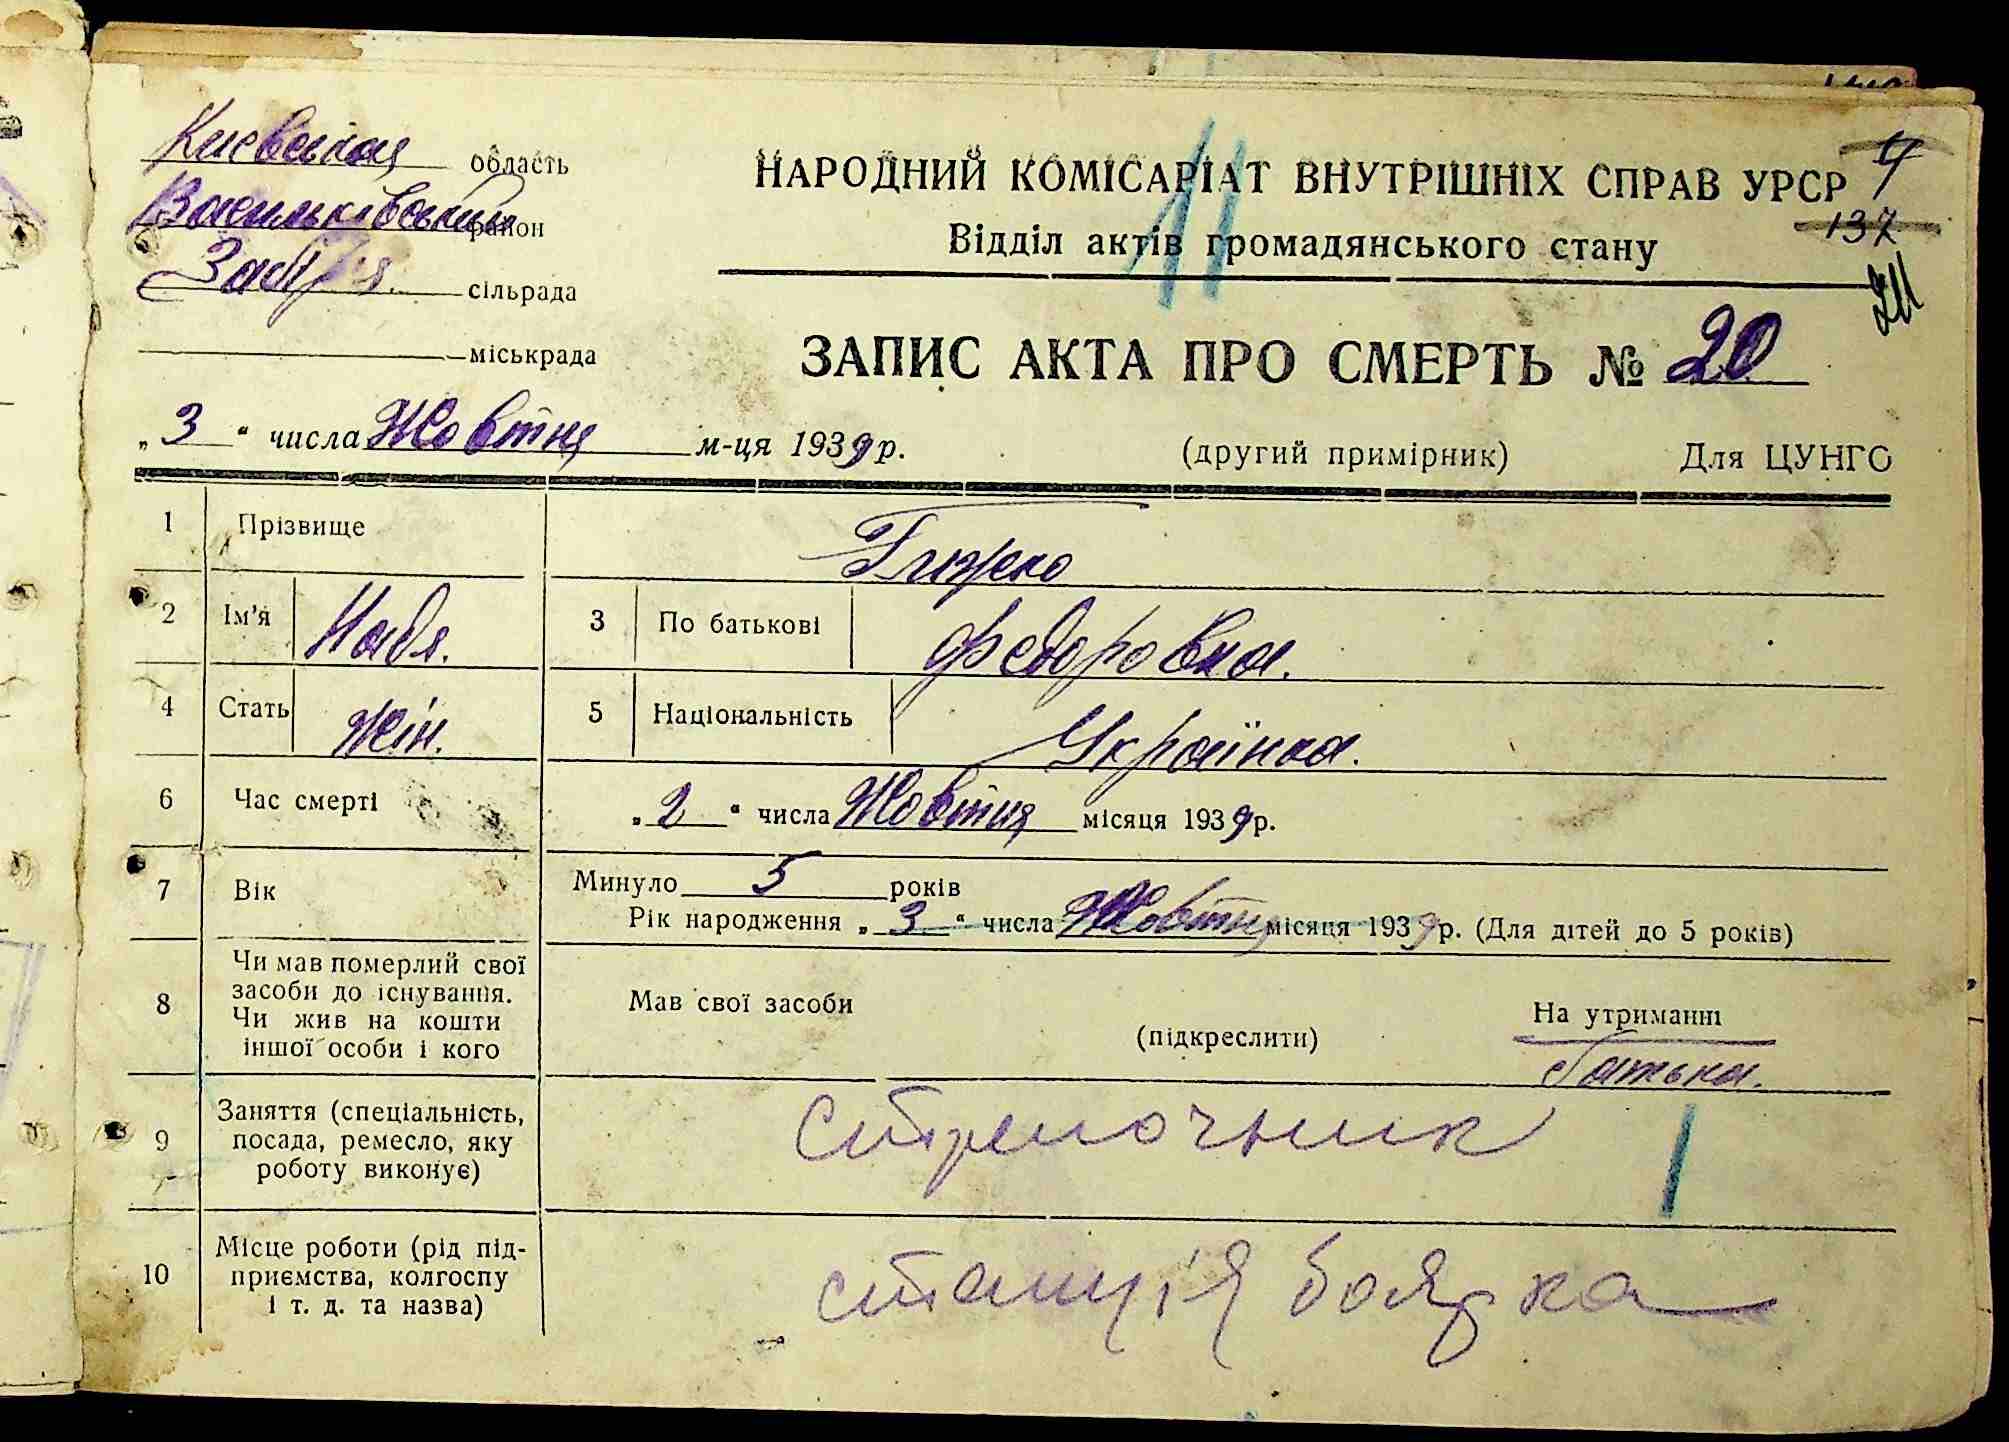 Киевская область
Васильківський район
Забіря сільрада
міськрада
НАРОДНИЙ КОМІСАРІАТ ВНУТРІШНІХ СПРАВ УРСР
Відділ актів громадянського стану
11
4
137
ЗАПИС АКТА ПРО СМЕРТЬ № 20
„3“ числа Жовтня м-ця 1939 р.
(другий примірник) Для ЦУНГО
1 Прізвище
2 Ім'я Надя. 3 По батькові Федоровна.
4 Стать жін. 5 Національність Українка.
6 Час смерті „2“ числа Жовтня місяця 1939 р.
7 Вік Минуло 5 років
Рік народження „3“ числа Жовтня місяця 1939 р. (Для дітей до 5 років)
8 Чи мав померлий свої засоби до існування. Чи жив на кошти іншої особи і кого
Мав свої засоби (підкреслити) На утриманні
батька.
9 Заняття (спеціальність, посада, ремесло, яку роботу виконує)
стрелочник
10 Місце роботи (рід підприємства, колгоспу і т. д. та назва)
станція боярка